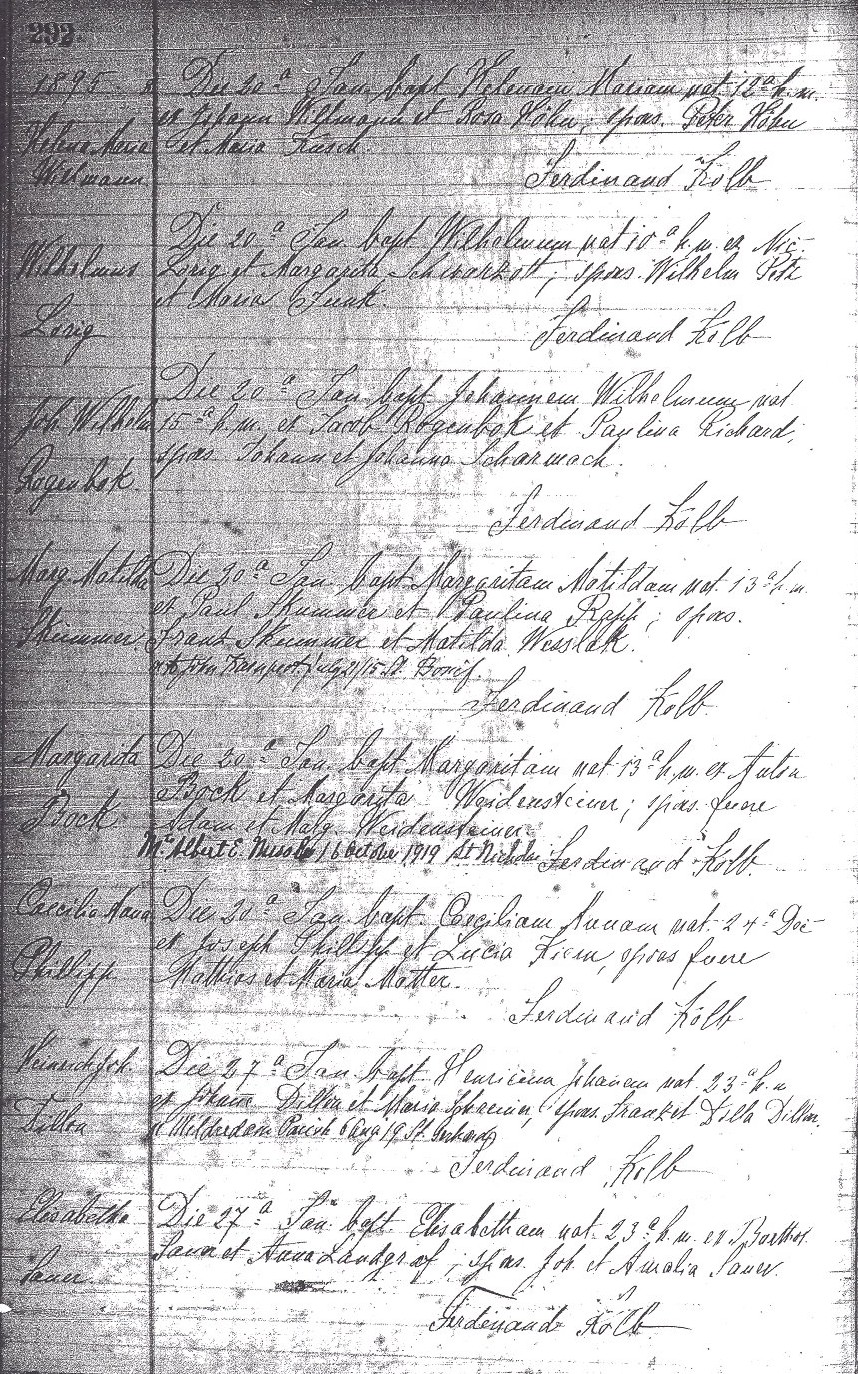 292
1895
Helena Maria
Wilmann
Die 20ª Jan. bapt. Helenam Mariam nat. 12ª h.m.
ex Johann Willmann et Rosa Höhn; spons. Peter Höhn
et Maria Küsch.
Ferdinand Kolb
Wilhelmus
Lorig
Die 20ª Jan. bapt. Wilhelmum nat 10ª h.m. ex Nic.
Lorig et Margarita Schwarzott; spons. Wilhelm
et Maria Funk.
Ferdinand Kolb
Joh. Wilhelm
Rogenbok
Die 20ª Jan. bapt. Johannem Wilhelmum nat.
15ª h.m. ex Jacob Rogenbok et Paulina Richard;
spons. Johann et Johanna Scharmach.
Ferdinand Kolb
Marg. Matilda
Skummer
Die 20ª Jan. bapt. Margaritam Matildam nat. 13ª h.m.
ex Paul Skummer et Paulina Rapp; spons.
Franz Skummer et Matilda Wesslak.
John July 21/15 St. Bonif.
Ferdinand Kolb.
Margarita
Bock
Die 20ª Jan. bapt. Margaritam nat 13ª h.m. ex Anton
Bock et Margarita Weidensteiner; spons. fuere
Adam et Marg. Weidensteiner.
Albert E. 16 October 1919 St Nicholas
Ferdinand Kolb.
Caecilia Anna
Phillipp
Die 20ª Jan. bapt. Caeciliam Annam nat. 24ª Dec
ex Joseph Phillipp et Lucia Kiem, spons fuere
Mathias et Maria Matter.
Ferdinand Kolb
Heinrich Joh.
Dillon
Die 27ª Jan. bapt. Henricum Johanem nat. 23ª h.m
ex Johann Dillon et Maria spons. Franz et Dillon.
Mildredam 6 Aug 19 St. Gerhard
Ferdinand Kolb
Elisabetha
Sauer
Die 27ª Jan. bapt Elisabetham nat. 23ª h.m. ex Barthol.
Sauer et Anna Landgraf; spons. Joh. et Amalia Sauer.
Ferdinand Kolb